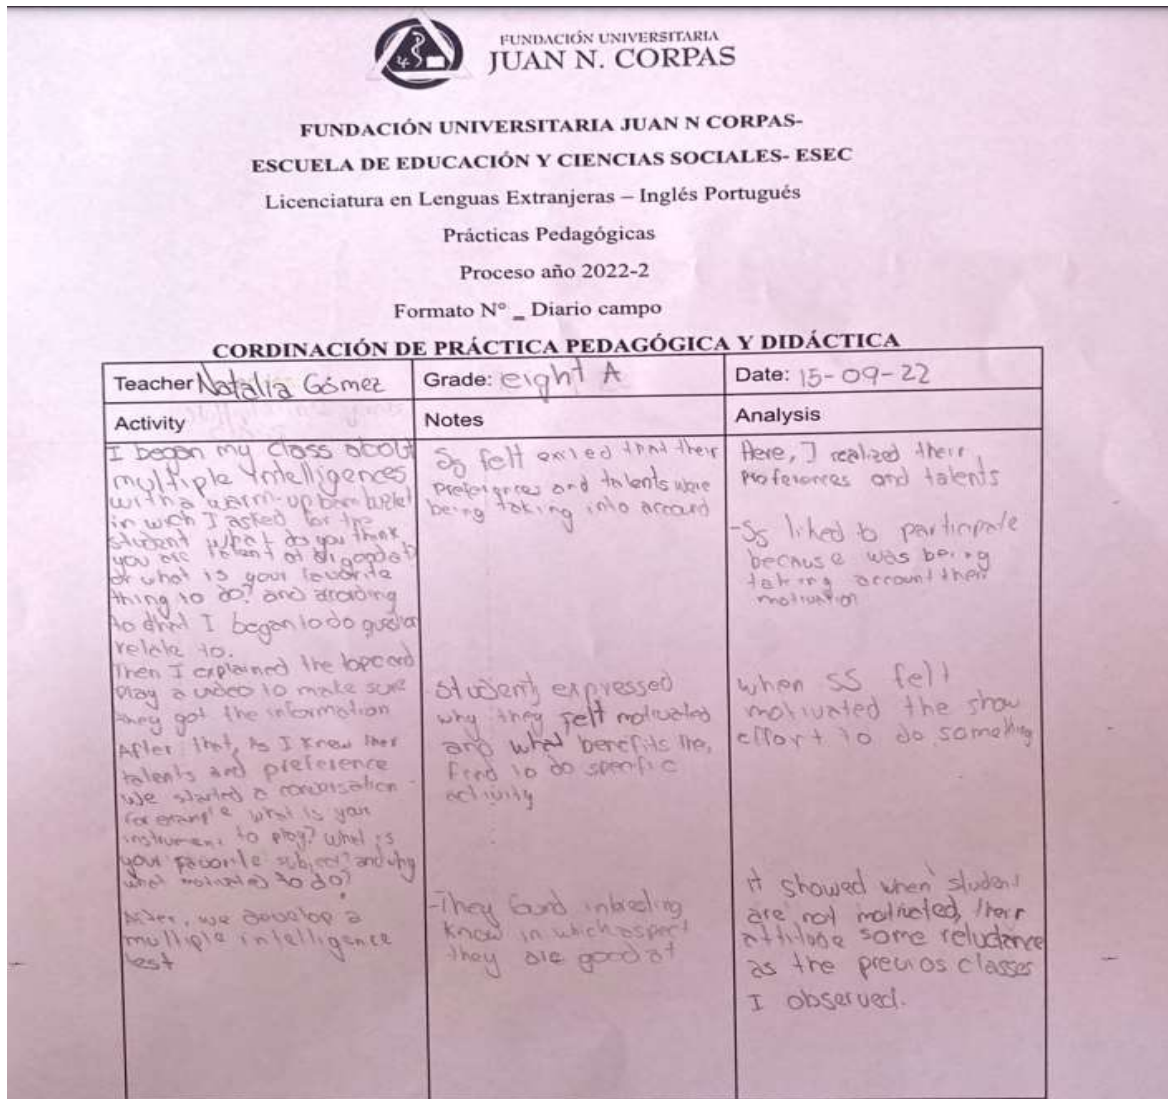 FUNDACIÓN UNIVERSITARIA
JUAN N. CORPAS
FUNDACIÓN UNIVERSITARIA JUAN N CORPAS-
ESCUELA DE EDUCACIÓN Y CIENCIAS SOCIALES- ESEC
Licenciatura en Lenguas Extranjeras – Inglés Portugués
Prácticas Pedagógicas
Proceso año 2022-2
Formato Nº _ Diario campo
CORDINACIÓN DE PRÁCTICA PEDAGÓGICA Y DIDÁCTICA
Teacher Natalia Gómez
Grade: eight A
Date: 15-09-22
Activity
Notes
Analysis
I began my class about
multiple intelligences
with a warm-up
in wich I asked for the
student what do you think
you are talent at
or what is your favorite
thing to do? and
to that I began to do
relate to.
Then I explained the and
play a video to make sure
they got the information
After that, As I knew
talents and preference
we started a
for example what is your
instrument to play? what is
your favorite subject? and why
what to do?
After, we develop a
multiple intelligence
test
Ss felt that their
and talents were
being taking into
Students expressed
why they felt motivated
and what benefits
to do specific
activity
-They
know in which aspect
they are good at
Here, I realized their
and talents
-Ss liked to participate
because was being
taking account their
motivation
when SS felt
motivated the show
effort to do something
it showed when student
are not their
some reluctance
as the classes
I observed.